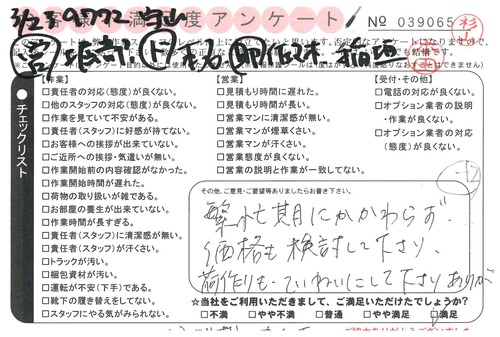 満 度アンケート № 039065
杉
【作業】
□責任者の対応(態度)が良くない。
□他のスタッフの対応(態度)が良くない。
□作業を見ていて不安がある。
□責任者(スタッフ)に好感が持てない。
□お客様への挨拶が出来ていない。
□ご近所への挨拶・気遣いが無い。
□作業開始前の内容確認がなかった。
□作業開始時間が遅れた。
□荷物の取り扱いが雑である。
□お部屋の養生が出来ていない。
□作業時間が長すぎる。
□責任者(スタッフ)に清潔感が無い。
□責任者(スタッフ)が汗くさい。
□トラックが汚い。
□梱包資材が汚い。
□運転が不安(下手)である。
□靴下の履き替えをしてない。
□スタッフにやる気がみられない。
チェックリスト
【営業】
□見積もり時間に遅れた。
□見積もり時間が長い。
□営業マンに清潔感が無い。
□営業マンが煙草くさい。
□営業マンが汗くさい。
□営業態度が良くない。
□営業の説明と作業が一致してない。
【受付・その他】
□電話の対応が良くない。
□オプション業者の説明
・作業が良くない。
□オプション業者の対応
(態度)が良くない。
その他、ご意見・ご要望等ありましたらお書き下さい。
繁忙期にかかわらず、
価格も検討して下さり、
荷作りも、ていねいにして下さりありが
☆当社をご利用いただきまして、ご満足いただけたでしょうか?
□不満 □やや不満 □普通 □やや満足 □満足